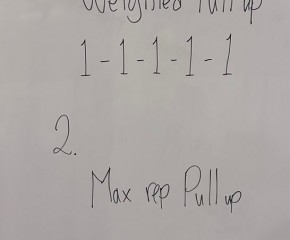 Weighted Pull up
1-1-1-1-1
2.
Max rep Pull up